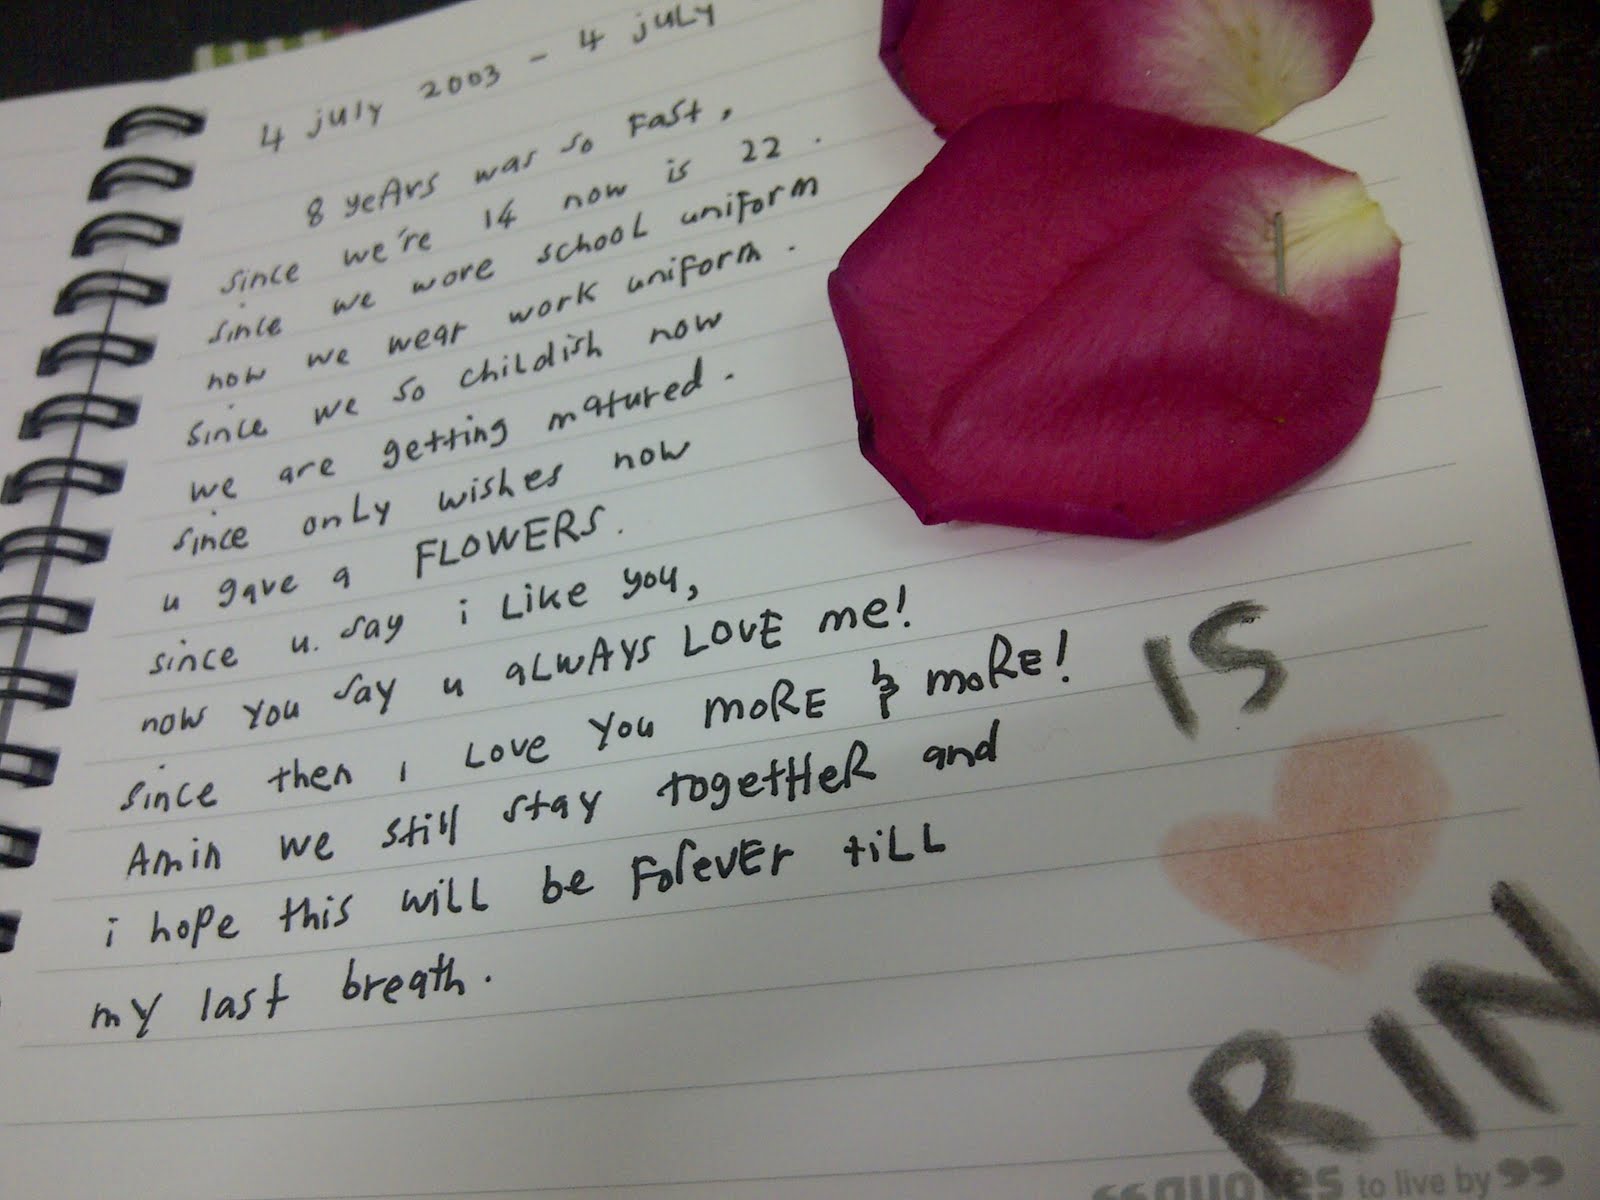 4 july 2003 - 4 july
8 yeArs was so Fast,
since we're 14 now is 22.
since we wore school uniform
now we wear work uniform.
since we so childish now
we are getting matured.
since only wishes now
u gave a FLOWERS.
since u. say i Like you,
now you say u aLWAYS LOVE me!
since then i Love You moRE & moRE!
Amin we still stay togetHeR and
i hope this will be ForevEr tiLL
my last breath.
IS
RIN
“quotes to live by”